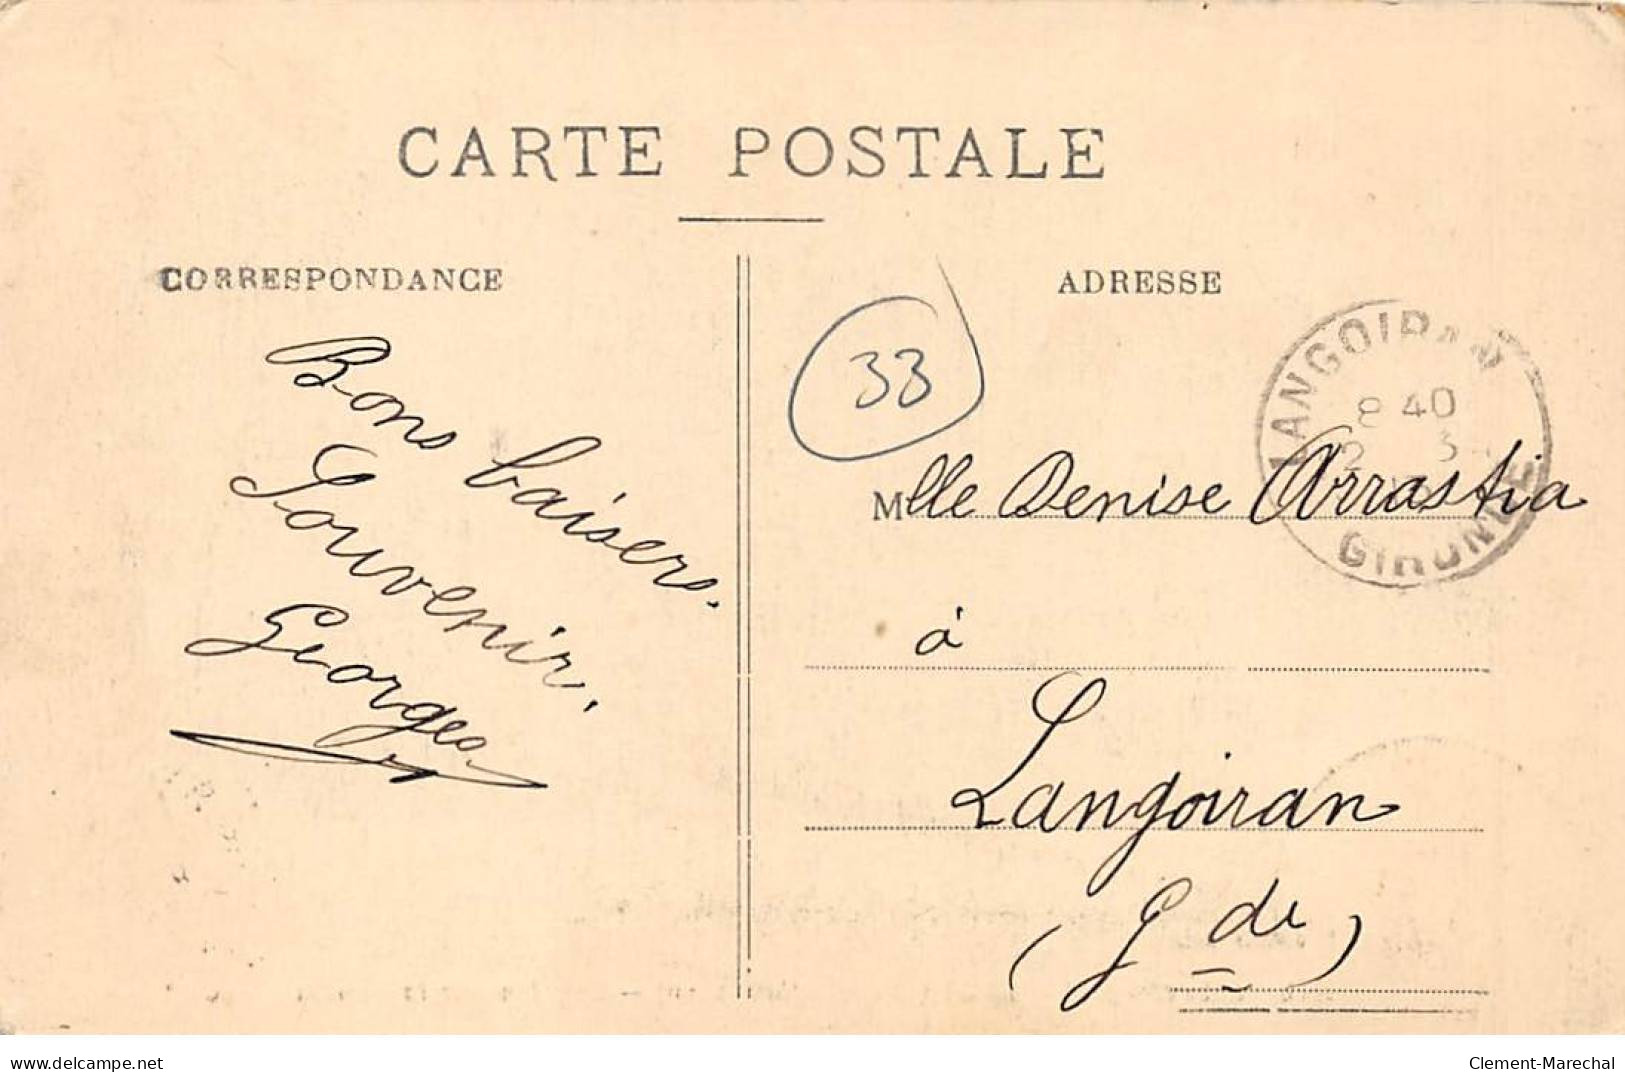 CARTE POSTALE
CORRESPONDANCE
Bons baisers.
Souvenir.
Georges
ADRESSE
33
LANGOIRAN
8 40
GIRONDE
Mlle Denise Arrastia
à
Langoiran
(Gde)
www.delcampe.net
Clement-Marechal